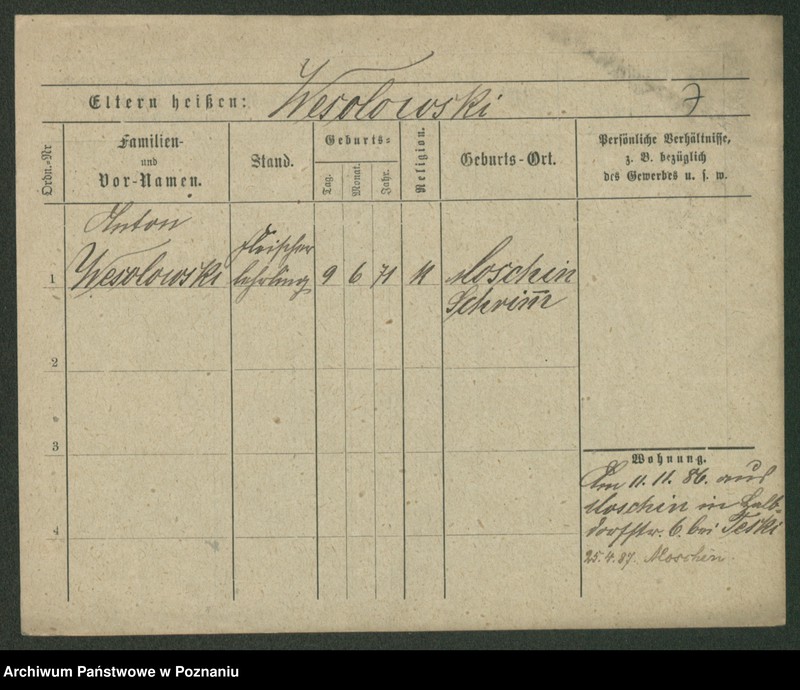 Eltern heißen: Wesolowski 7
Ordn.-Nr
Familien-
und
Vor-Namen.
Stand.
Geburts-
Tag.
Monat.
Jahr.
Religion.
Geburts-Ort.
Persönliche Verhältnisse,
z. B. bezüglich
des Gewerbes u. s. w.
Anton
Fleischer
1 Wesolowski lehrling 9 6 71 Moschin
Schrim̄
2
3
4
Wohnung.
Am 11. 11. 86. aus
Moschin in Halb-
dorfstr. 6. bei Teski
25.4.87. Moschin
Archiwum Państwowe w Poznaniu